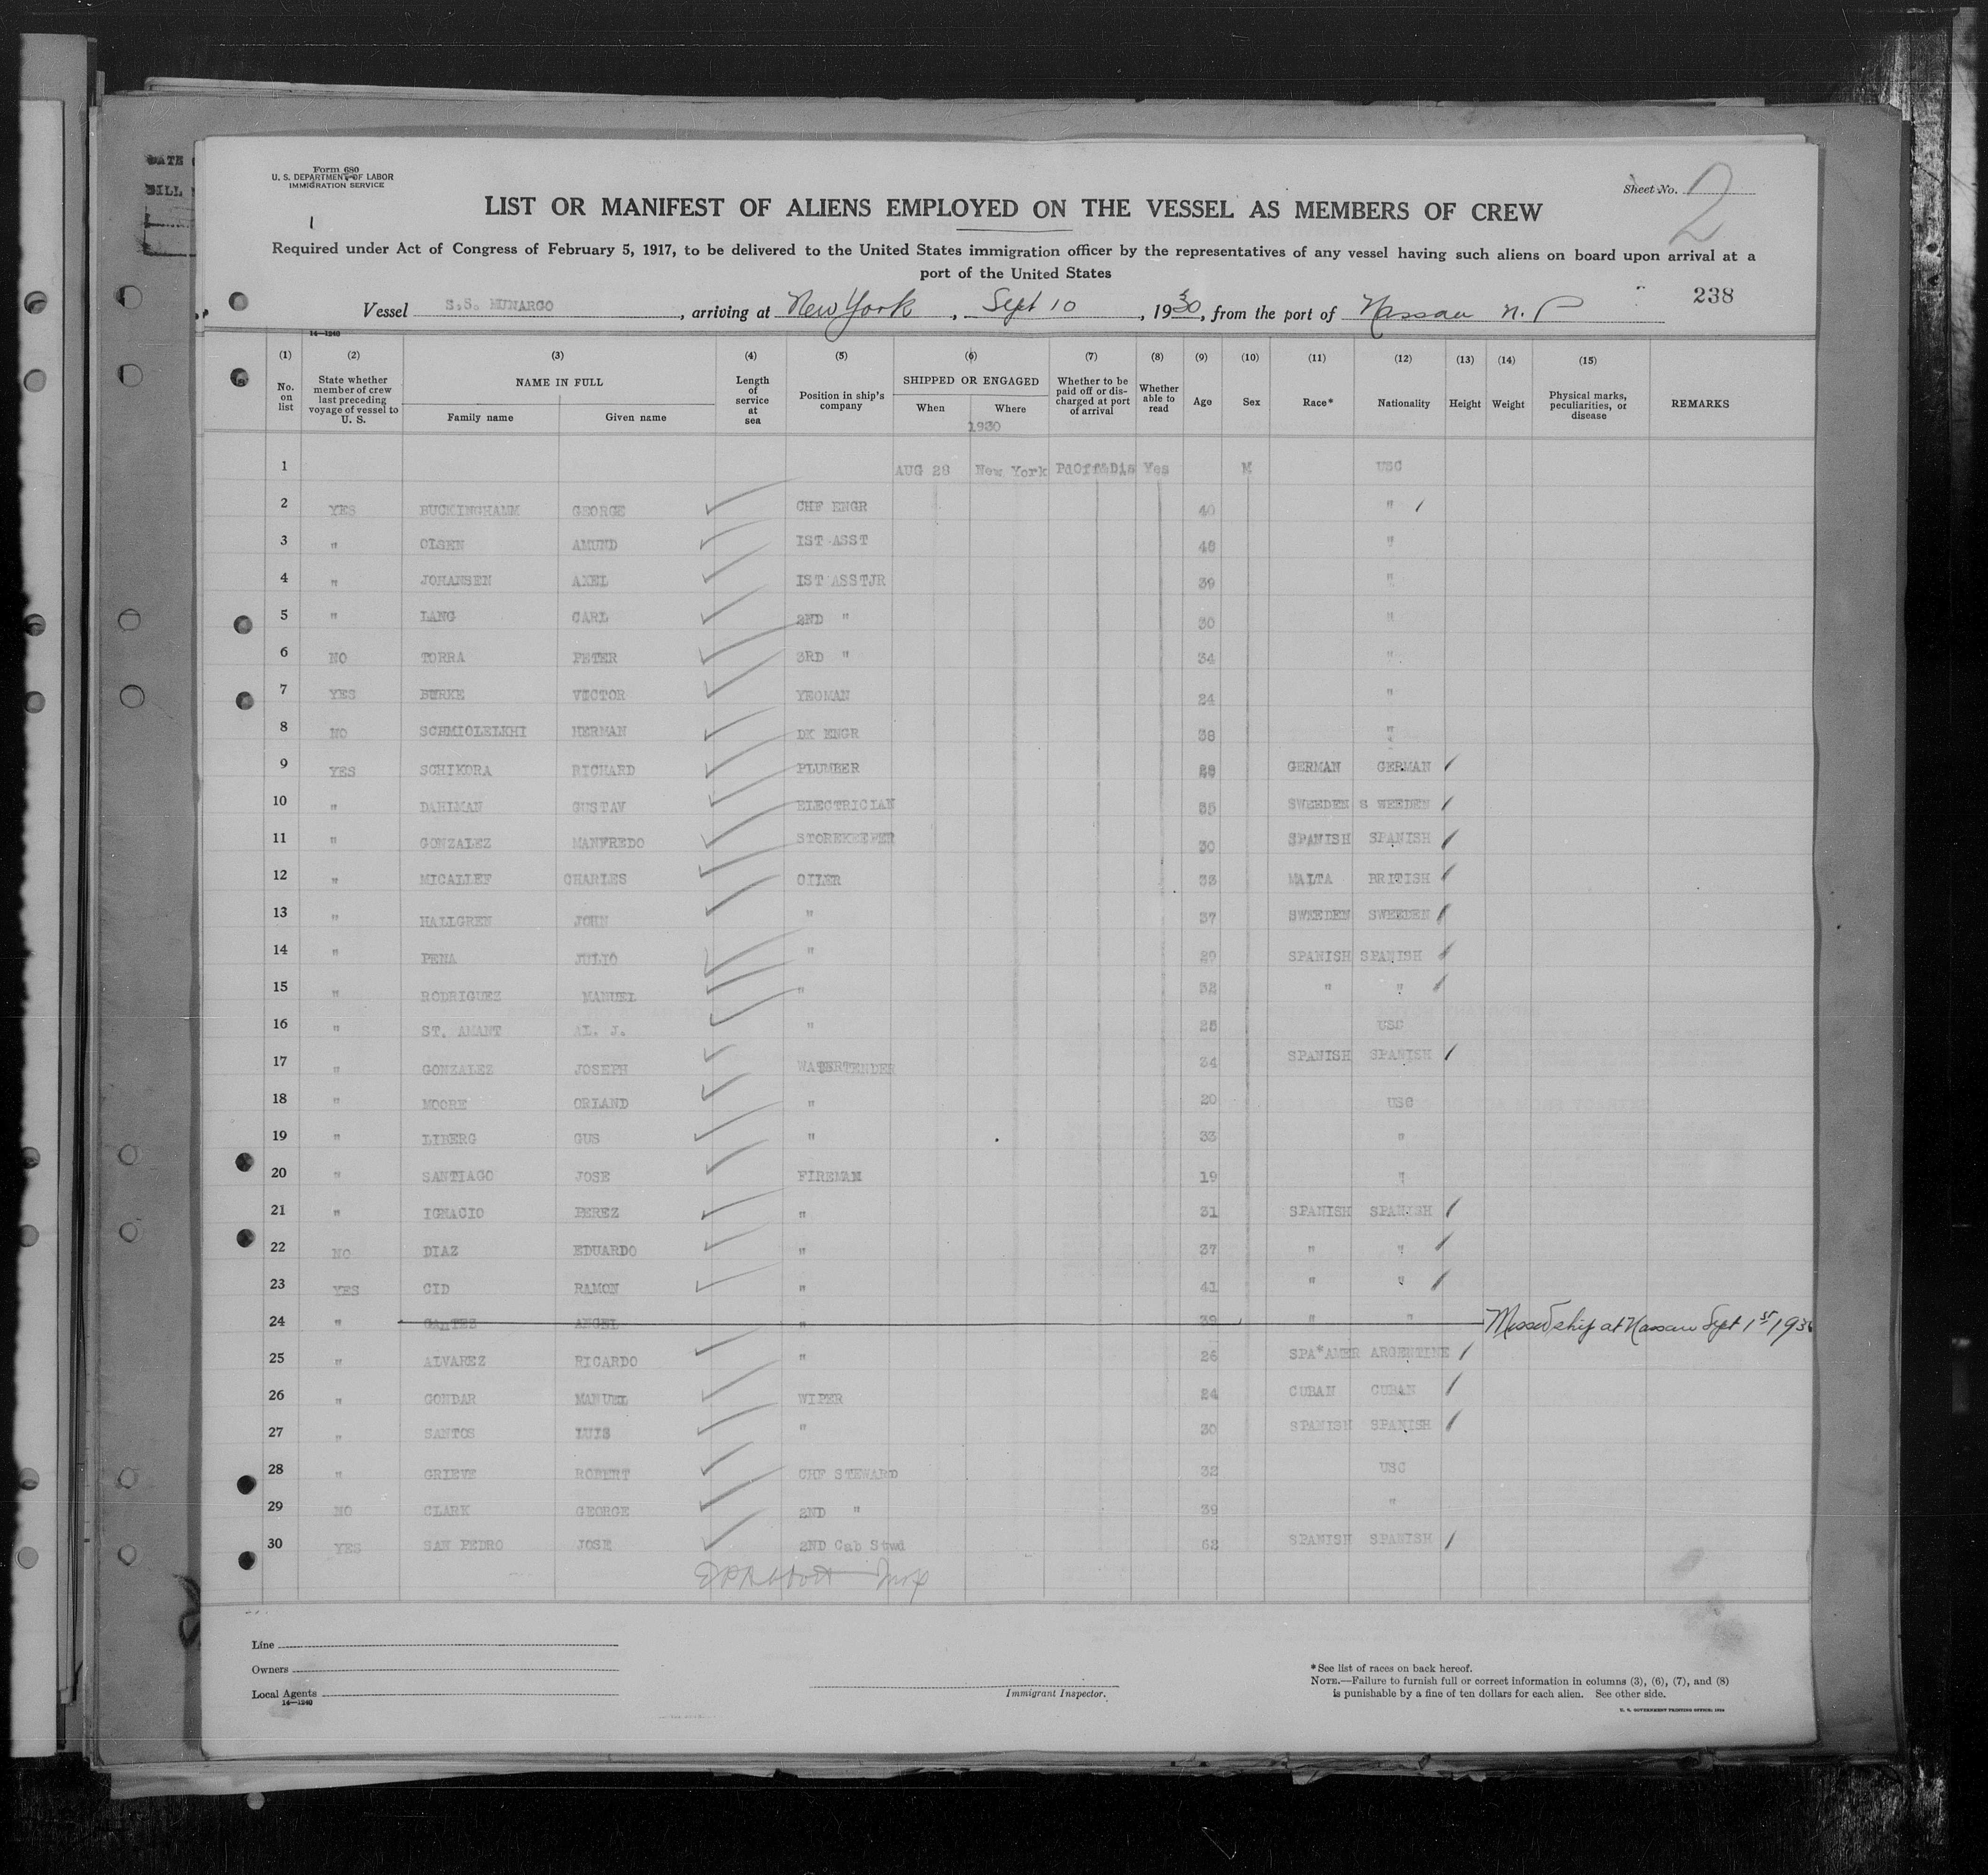 DATE
BILL
Form 680
U. S. DEPARTMENT OF LABOR
IMMIGRATION SERVICE
Sheet No. 2
LIST OR MANIFEST OF ALIENS EMPLOYED ON THE VESSEL AS MEMBERS OF CREW
Required under Act of Congress of February 5, 1917, to be delivered to the United States immigration officer by the representatives of any vessel having such aliens on board upon arrival at a
port of the United States
238
Vessel S.S. MUNARGO, arriving at New York, Sept 10, 1930, from the port of Nassau N. P
14—1240
(1) (2) (3) (4) (5) (6) (7) (8) (9) (10) (11) (12) (13) (14) (15)
No. on list State whether member of crew last preceding voyage of vessel to U. S. NAME IN FULL Family name Given name Length of service at sea Position in ship's company SHIPPED OR ENGAGED When Where Whether to be paid off or discharged at port of arrival Whether able to read Age Sex Race* Nationality Height Weight Physical marks, peculiarities, or disease REMARKS
1930
1 AUG 28 New York PdOff&Dis Yes M USC
2 YES BUCKINGHAMM GEORGE CHF ENGR 40 "
3 " OLSEN AMUND IST ASST 48 "
4 " JOHANSEN AXEL IST ASSTJR 39 "
5 " LANG CARL 2ND " 30 "
6 NO TORRA PETER 3RD " 34 "
7 YES BURKE VICTOR YEOMAN 24 "
8 NO SCHMIOLELKHI HERMAN DK ENGR 38 "
9 YES SCHIKORA RICHARD PLUMBER GERMAN GERMAN
10 " DAHLMAN GUSTAV ELECTRICIAN 35 SWEEDEN S WEEDEN
11 " GONZALEZ MANFREDO STOREKEEPER 30 SPANISH SPANISH
12 " MICALLEF CHARLES OILER 33 MALTA BRITISH
13 " HALLGREN JOHN " 37 SWEEDEN SWEEDEN
14 " PENA JULIO " 29 SPANISH SPANISH
15 " RODRIGUEZ MANUEL " 32 " "
16 " ST. AMANT AL. J. " 25 USC
17 " GONZALEZ JOSEPH WATERTENDER 34 SPANISH SPANISH
18 " MOORE ORLAND " 20 USC
19 " LIBERG GUS " 33 "
20 " SANTIAGO JOSE FIREMAN 19 "
21 " IGNACIO PEREZ " 31 SPANISH SPANISH
22 NO DIAZ EDUARDO " 37 " "
23 YES CID RAMON " 41 " "
24 " ANGEL " 39 " " Missed ship at Nassau Sept 1st 1930
25 " ALVAREZ RICARDO " 26 SPA*AMER ARGENTINE
26 " GONDAR MANUEL WIPER 24 CUBAN CUBAN
27 " SANTOS LUIS " 30 SPANISH SPANISH
28 " GRIEVE ROBERT CHF STEWARD 32 USC
29 NO CLARK GEORGE 2ND " 39 "
30 YES SAN PEDRO JOSE 2ND Cab Stwd 62 SPANISH SPANISH
Insp
Line
Owners
Local Agents
14—1240
Immigrant Inspector.
*See list of races on back hereof.
NOTE.—Failure to furnish full or correct information in columns (3), (6), (7), and (8)
is punishable by a fine of ten dollars for each alien. See other side.